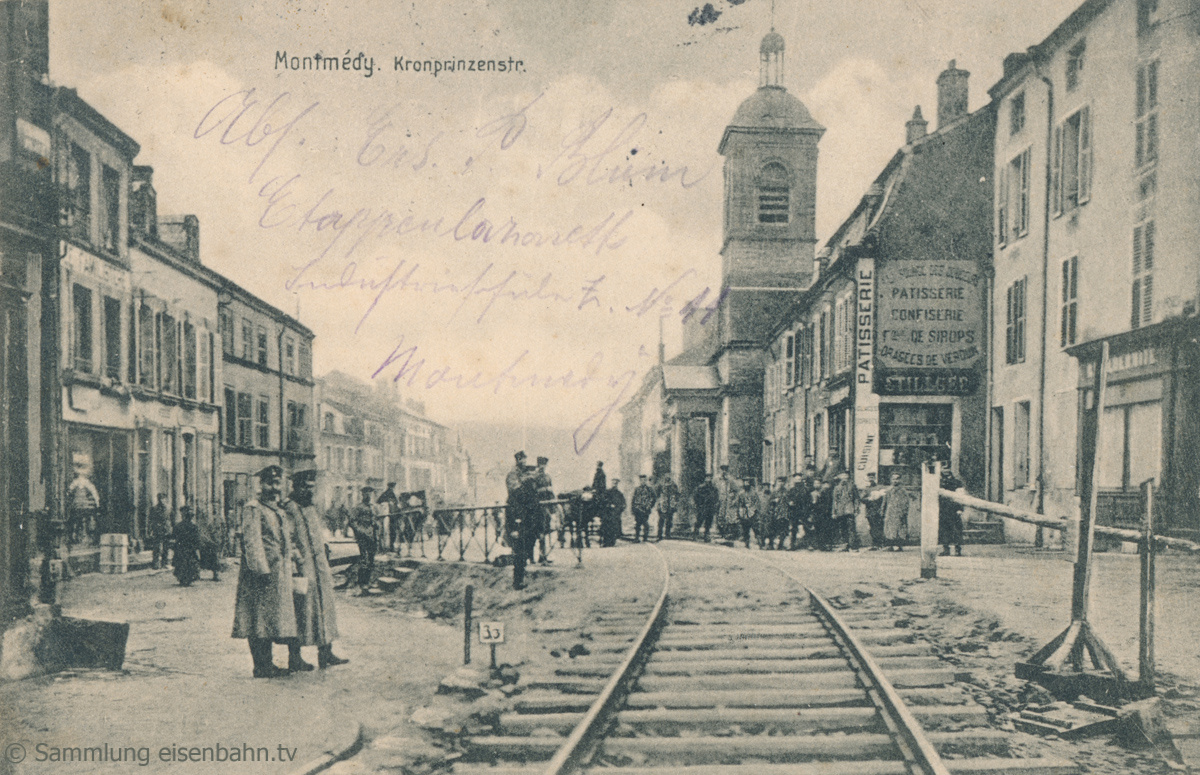 Montmédy. Kronprinzenstr.
Abs. Ers. Blum
Etappenlazarett
Industrieschule Z. No
Montmedy
PATISSERIE
CUISINE
PATISSERIE
CONFISERIE
DE SIROPS
DRAGÉES DE VERDUN
STILLGER
33
© Sammlung eisenbahn.tv